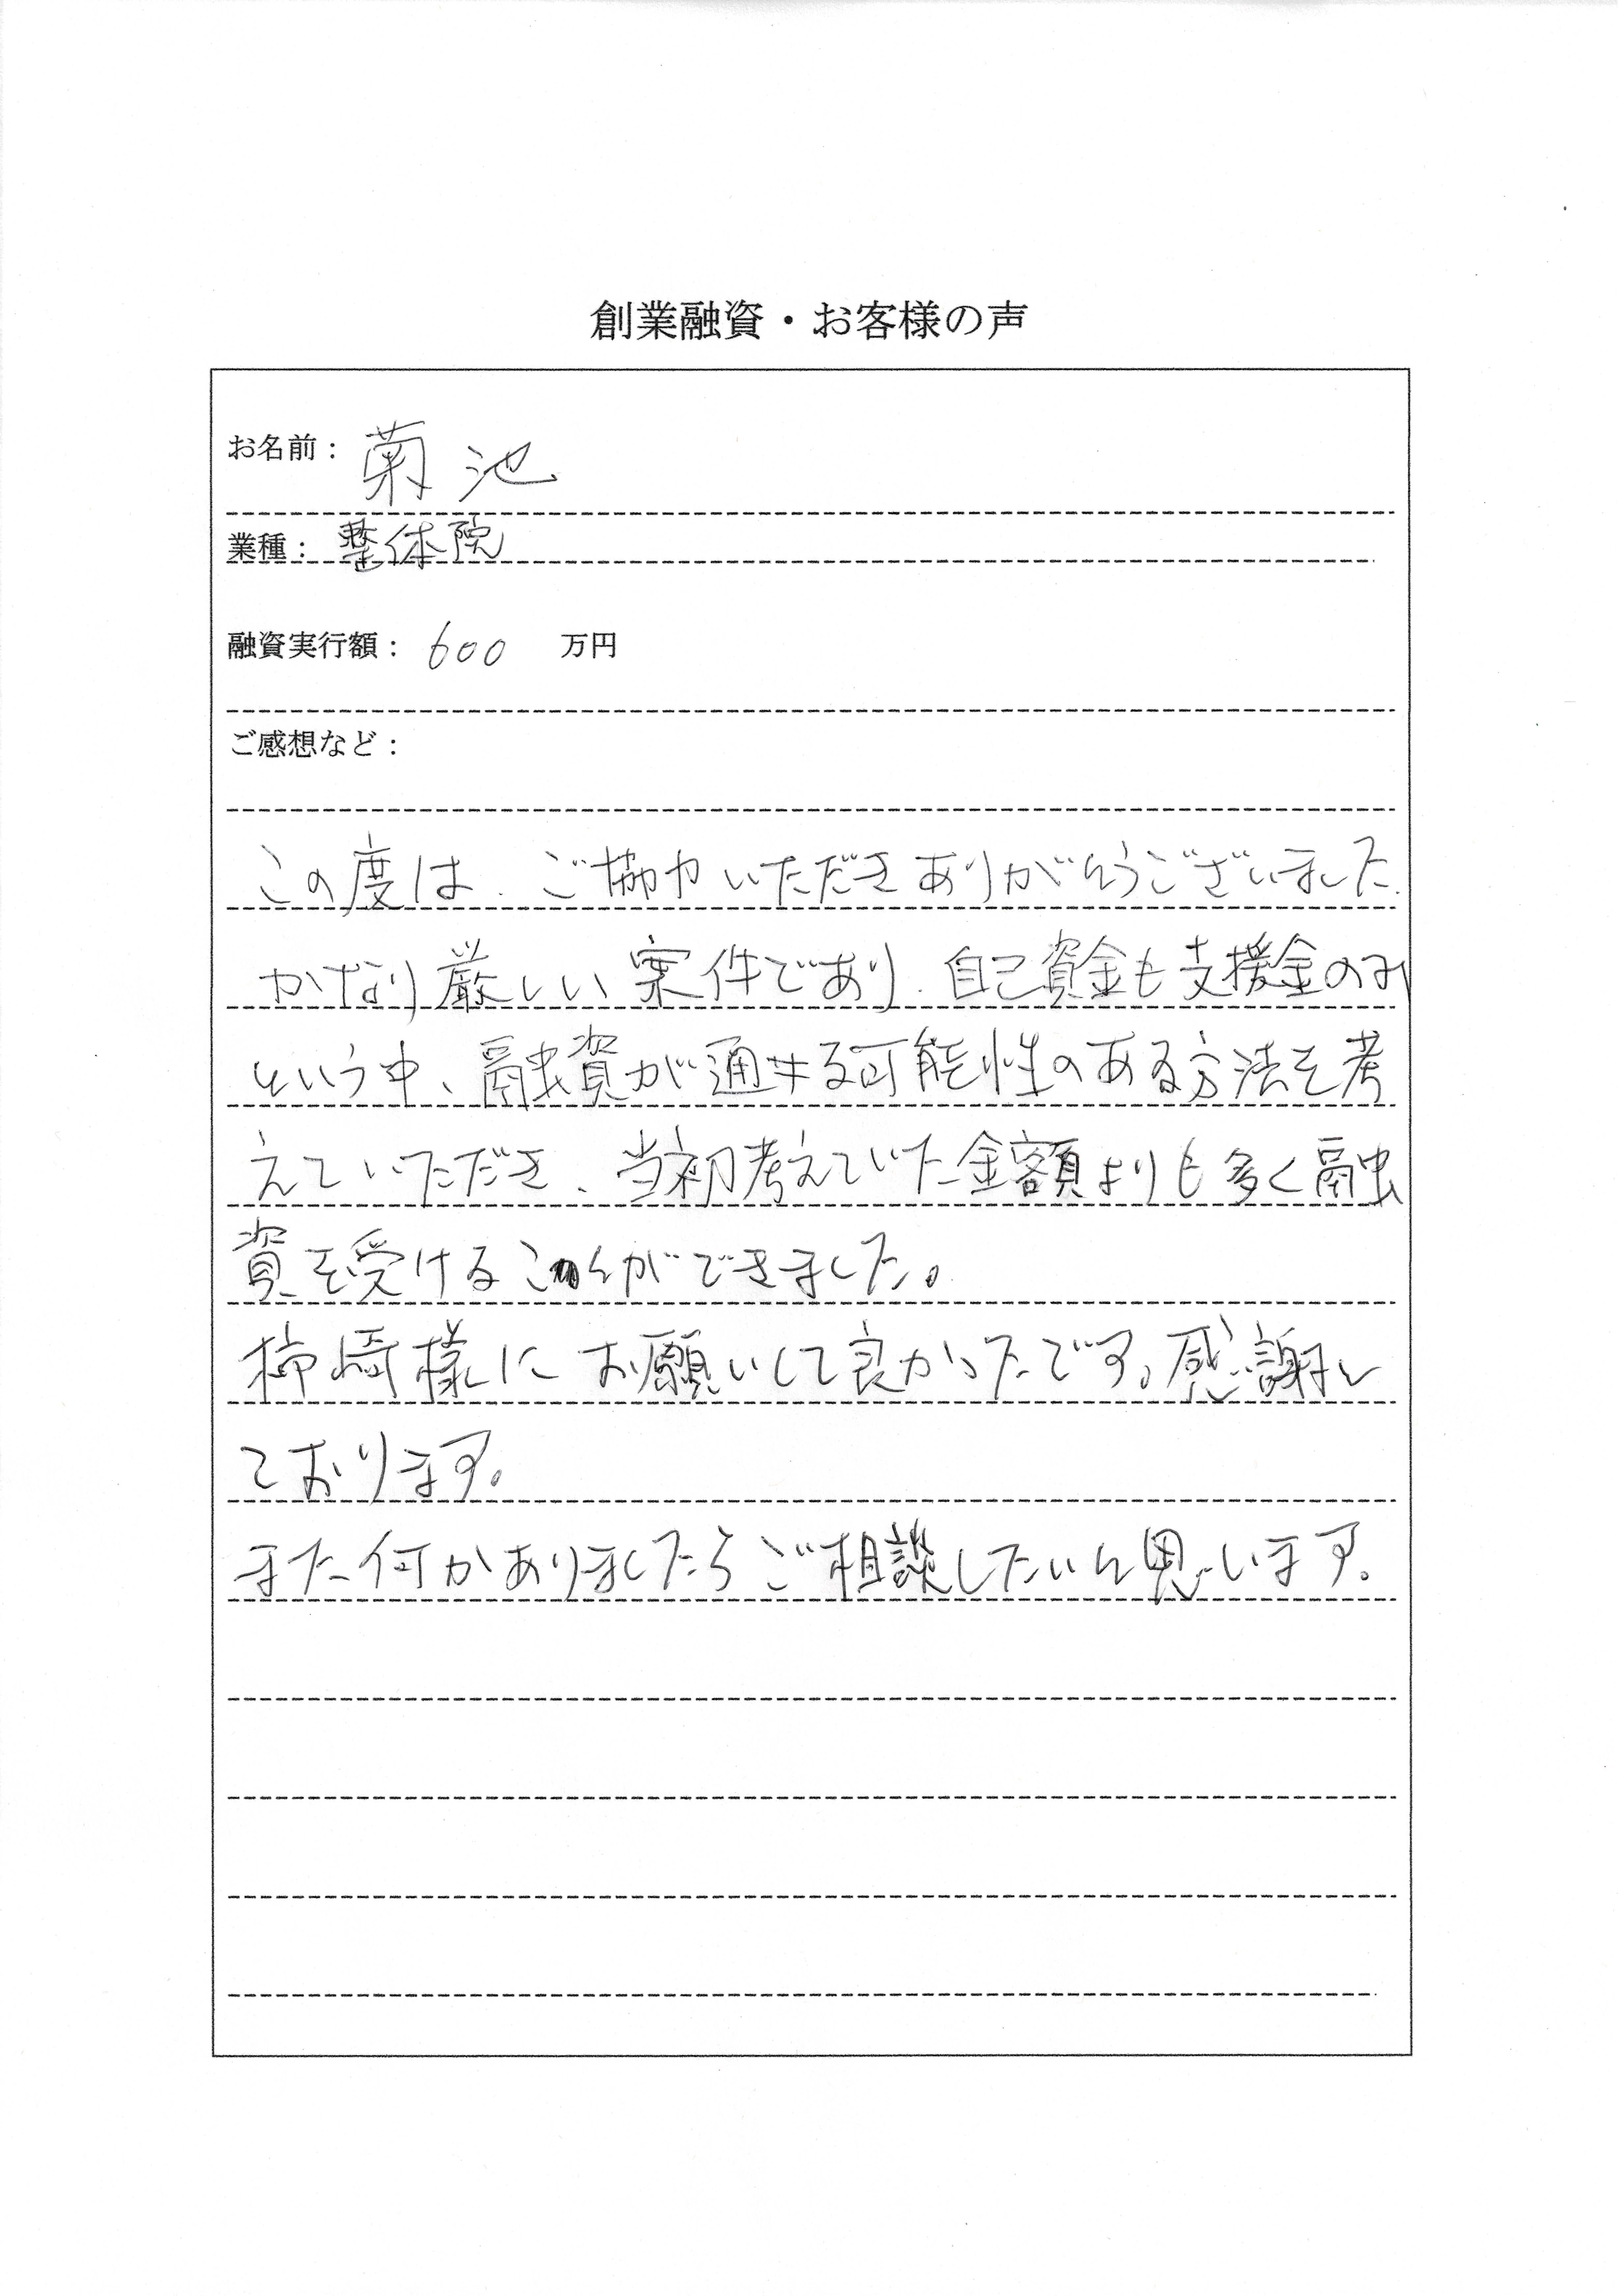 創業融資・お客様の声
お名前： 菊池
業種： 整体院
融資実行額： 600 万円
ご感想など：
この度は、ご協力いただきありがとうございました。
かなり厳しい案件であり、自己資金も支援金のみ
という中、融資が通せる可能性のある方法を考
えていただき、当初考えていた金額よりも多く融
資を受けることができました。
柿崎様にお願いして良かったです。感謝し
ております。
また何かありましたらご相談したいと思います。